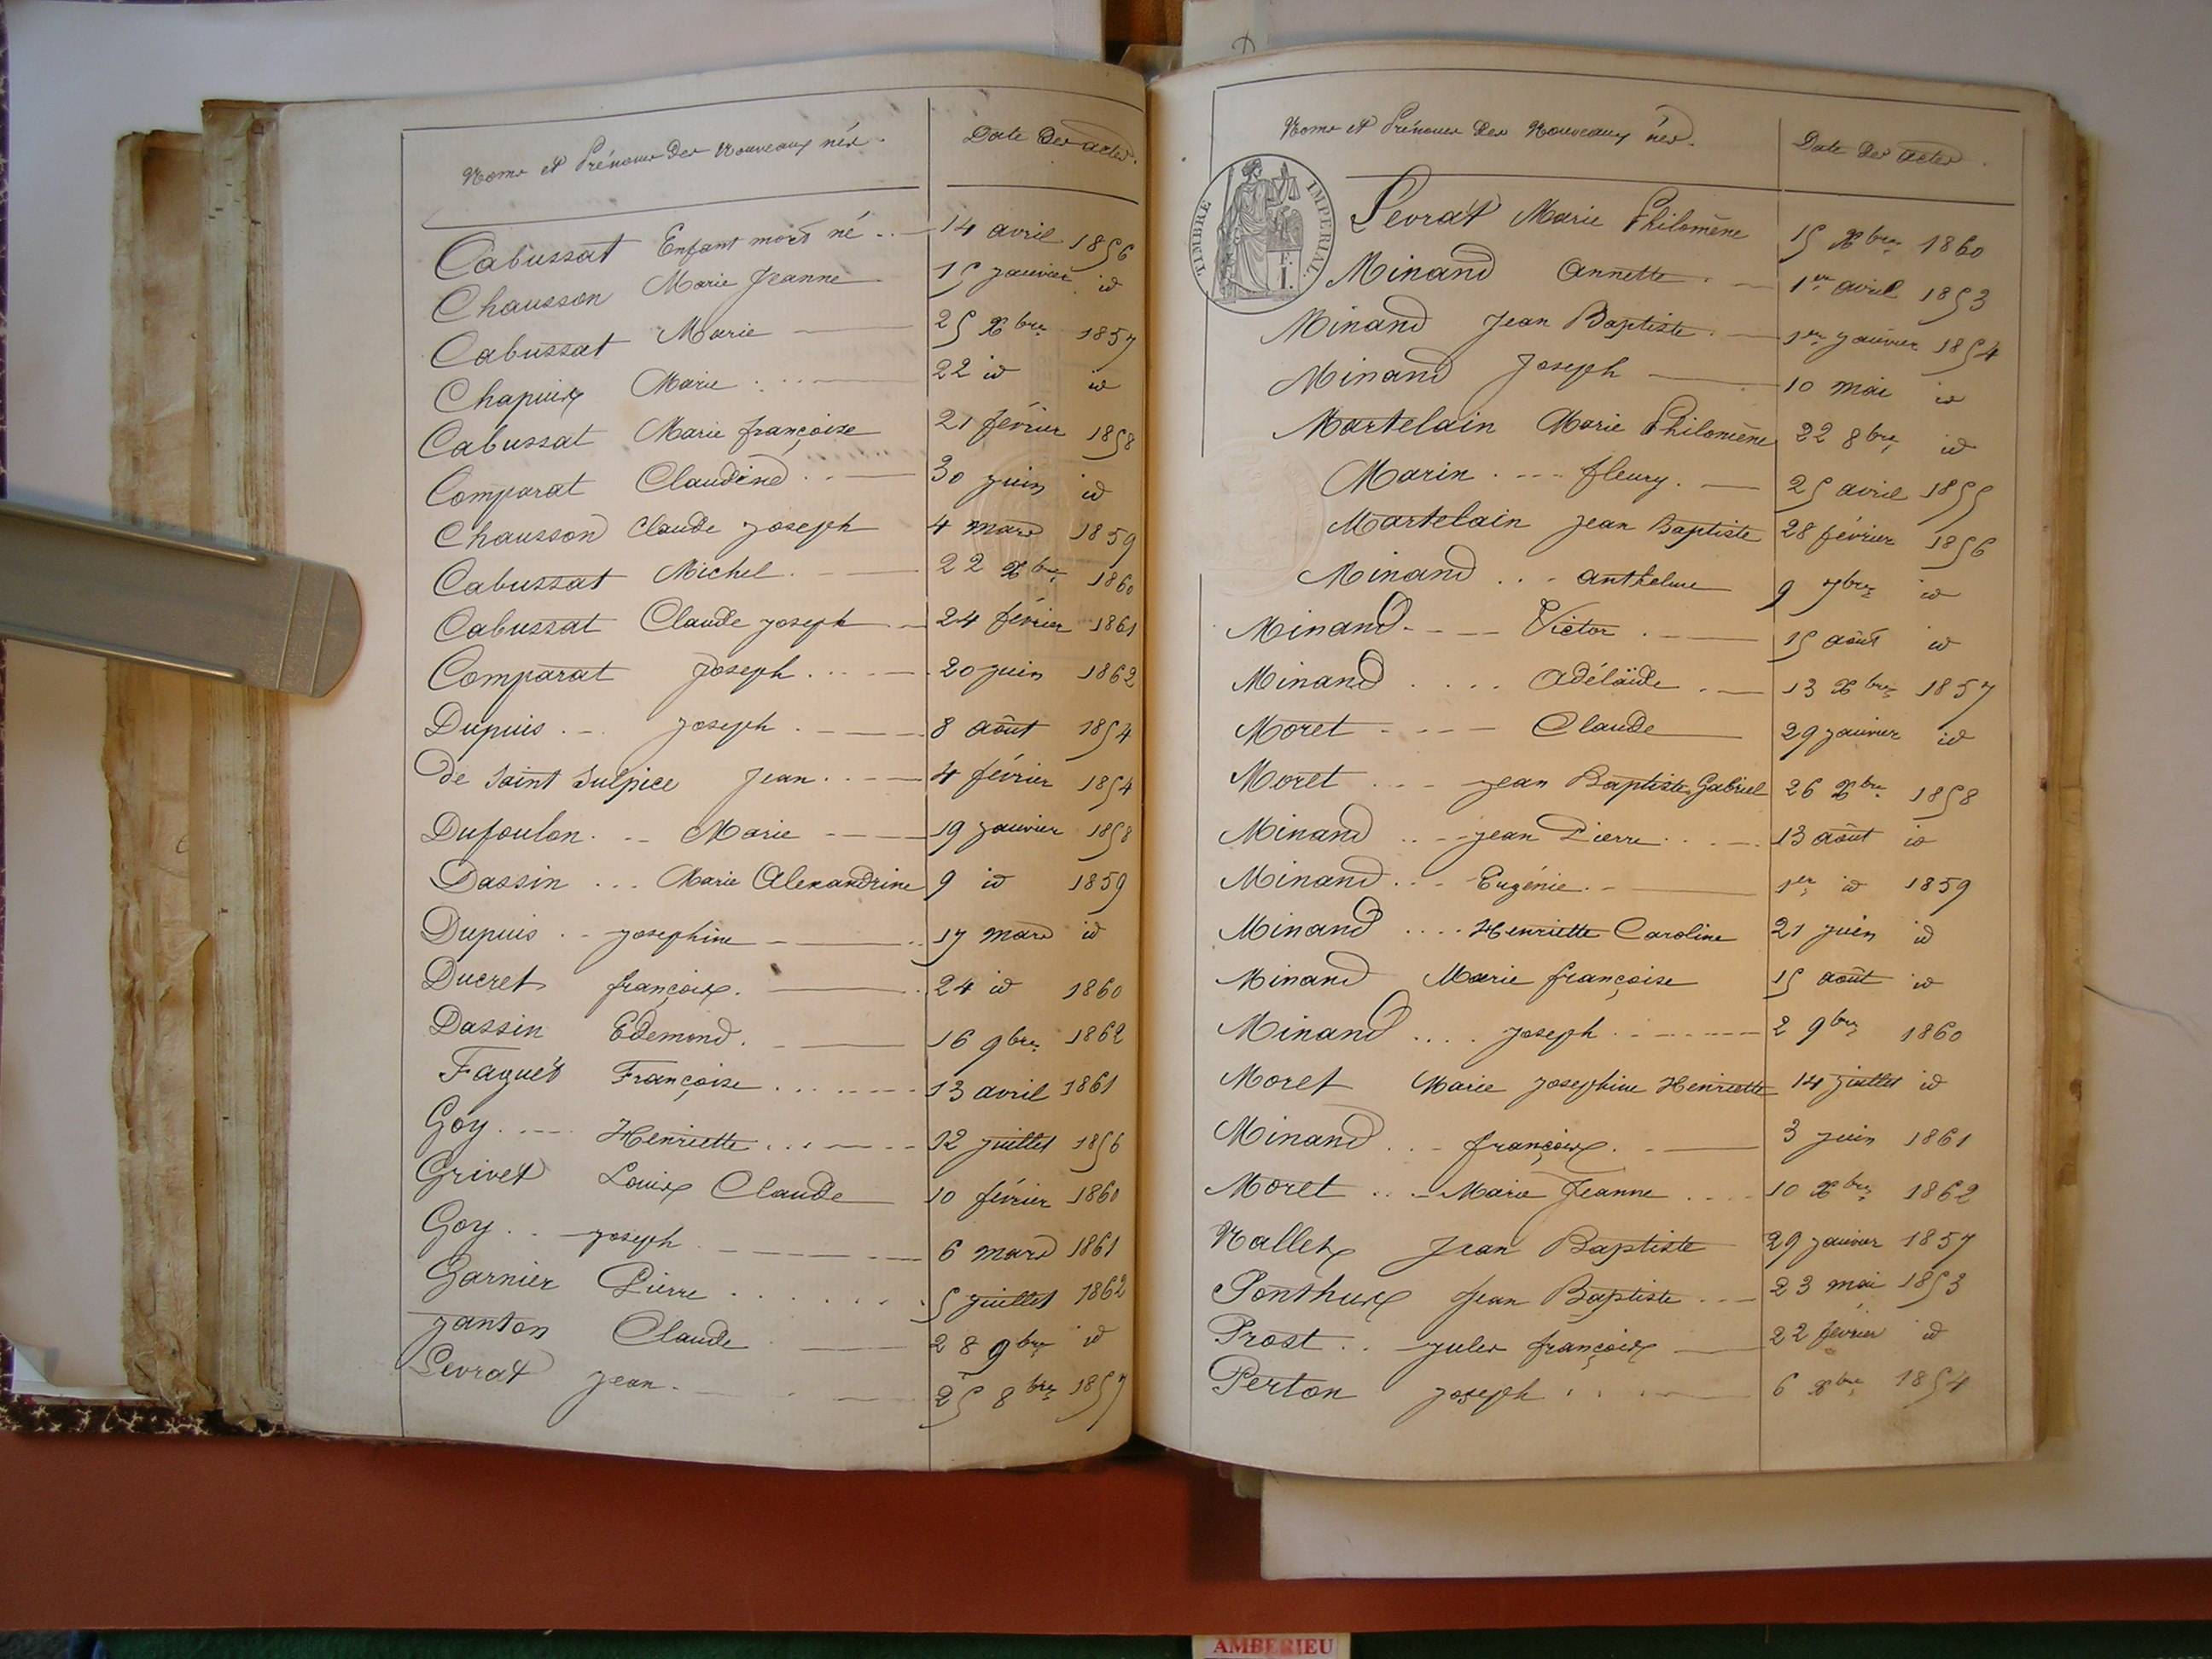 Noms et Prénoms des Nouveaux nés. Date des actes.
Cabussat Enfant mort né 14 avril 1856
Chausson Marie Jeanne 15 janvier id
Cabussat Marie 25 Xbre 1857
Chapuix Marie 22 id id
Cabussat Marie françoise 21 février 1858
Comparat Claudine 30 juin id
Chausson Claude joseph 4 mars 1859
Cabussat Michel 22 Xbre 1860
Cabussat Claude joseph 24 février 1861
Comparat Joseph 20 juin 1862
Dupuis joseph 8 août 1854
De Saint Sulpice Jean 4 février 1854
Dufoulon Marie 19 janvier 1858
Dassin Marie Alexandrine 9 id 1859
Dupuis josephine 17 mars id
Ducret françois 24 id 1860
Dassin Edemond 16 9bre 1862
Faguet Françoise 13 avril 1861
Goy Henriette 12 juillet 1856
Grivet Louis Claude 10 février 1860
Goy joseph 6 mars 1861
Garnier Pierre 5 juillet 1862
janton Claude 28 9bre id
Levrat jean 25 8bre 1857
TIMBRE IMPÉRIAL.
Noms et Prénoms des Nouveaux nés. Date des actes.
Levrat Marie Philomène 15 Xbre 1860
Minand Annette 1er avril 1853
Minand Jean Baptiste 1er janvier 1854
Minand Joseph 10 mai id
Martelain Marie Philomène 22 8bre id
Marin fleury 25 avril 1855
Martelain Jean Baptiste 28 février 1856
Minand anthelme 9 7bre id
Minand Victor 15 août id
Minand Adélaïde 13 Xbre 1857
Moret Claude 29 janvier id
Moret jean Baptiste Gabriel 26 Xbre 1858
Minand jean Pierre 13 août id
Minand Eugénie 1er id 1859
Minand Henriette Caroline 21 juin id
Minand Marie françoise 15 août id
Minand joseph 2 9bre 1860
Moret Marie josephine Henriette 14 juillet id
Minand françois 3 juin 1861
Moret Marie Jeanne 10 Xbre 1862
Nallet Jean Baptiste 29 janvier 1857
Ponthus Jean Baptiste 23 mai 1853
Prost jules françois 22 février id
Perton joseph 6 Xbre 1854
AMBERIEU